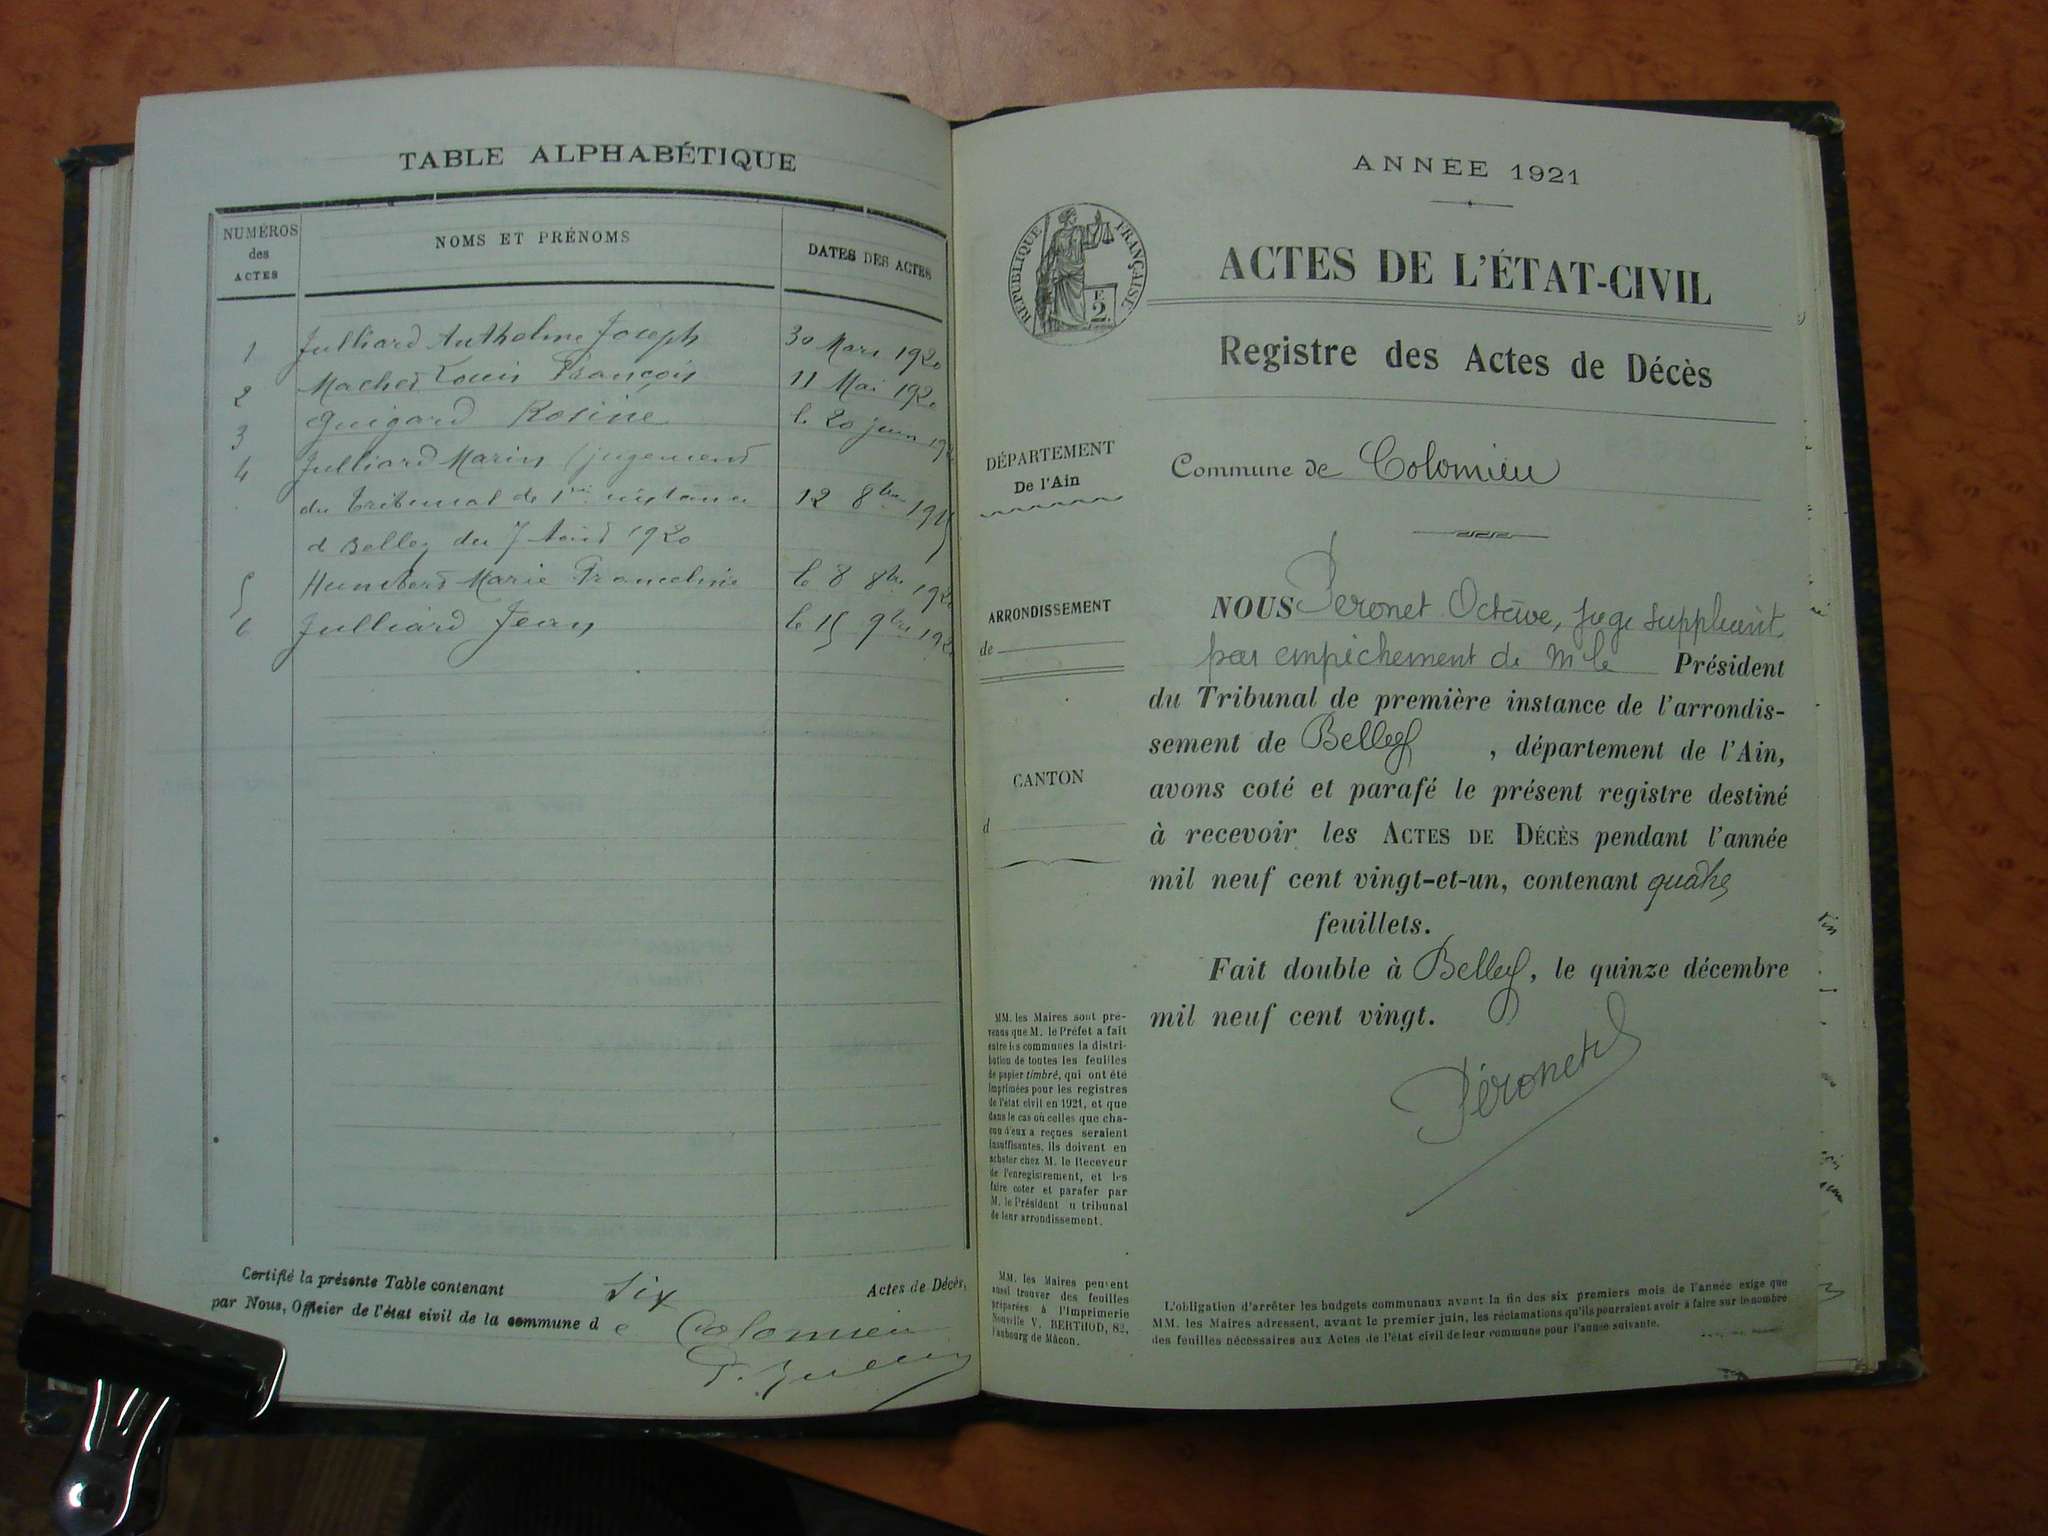 TABLE ALPHABÉTIQUE
NUMÉROS des ACTES
NOMS ET PRÉNOMS
DATES DES ACTES
1 Julliard Anthelme Joseph 30 Mars 1920
2 Machet Louis François 11 Mai 1920
3 Guigard Rosine le 20 juin 19
4 Julliard Marius (jugement
du Tribunal de 1re instance 12 8bre 191
d Belley du 7 Août 1920
5 Humbert Marie Franceline le 8 8bre 192
6 Julliard Jean le 15 9bre 192
Certifié la présente Table contenant six Actes de Décès,
par Nous, Officier de l'état civil de la commune de Colomieu
ANNÉE 1921
RÉPUBLIQUE FRANÇAISE
2
ACTES DE L'ÉTAT-CIVIL
Registre des Actes de Décès
DÉPARTEMENT
De l'Ain
Commune de Colomieu
ARRONDISSEMENT
de
CANTON
d
NOUS Péronet Octave, juge suppléant,
par empêchement de M le Président
du Tribunal de première instance de l'arrondis-
sement de Belley, département de l'Ain,
avons coté et parafé le présent registre destiné
à recevoir les ACTES DE DÉCÈS pendant l'année
mil neuf cent vingt-et-un, contenant quatre
feuillets.
Fait double à Belley, le quinze décembre
mil neuf cent vingt.
Péronet
MM. les Maires sont pré-
venus que M. le Préfet a fait
entre les communes la distri-
bution de toutes les feuilles
de papier timbré, qui ont été
imprimées pour les registres
de l'état civil en 1921, et que
dans le cas où celles que cha-
cun d'eux a reçues seraient
insuffisantes, ils doivent en
acheter chez M. le Receveur
de l'enregistrement, et les
faire coter et parafer par
M. le Président u tribunal
de leur arrondissement.
MM. les Maires peuvent
aussi trouver des feuilles
préparées à l'Imprimerie
Nouvelle V. BERTHOD, 82,
Faubourg de Mâcon.
L'obligation d'arrêter les budgets communaux avant la fin des six premiers mois de l'année exige que
MM. les Maires adressent, avant le premier juin, les réclamations qu'ils pourraient avoir à faire sur le nombre
des feuilles nécessaires aux Actes de l'état civil de leur commune pour l'année suivante.